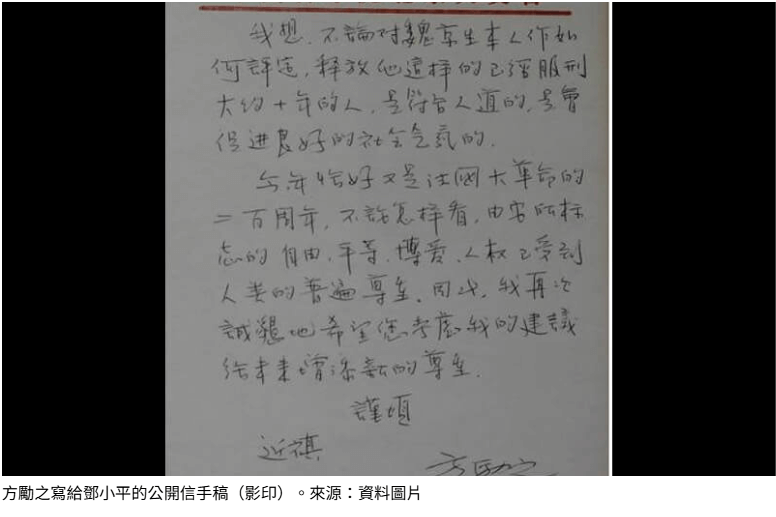 我想，不論对魏京生本人作如
何評定，释放他這样的已经服刑
大约十年的人，是符合人道的，是會
促进良好的社会气氛的.
今年恰好又是法國大革命的
二百周年，不論怎样看，由它所标
志的自由、平等、博爱、人权已受到
人类的普遍尊重．因此，我再次
誠懇地希望您考慮我的建議
给未来增添新的尊重.
謹頌
近祺
方勵之寫給鄧小平的公開信手稿（影印）。來源：資料圖片